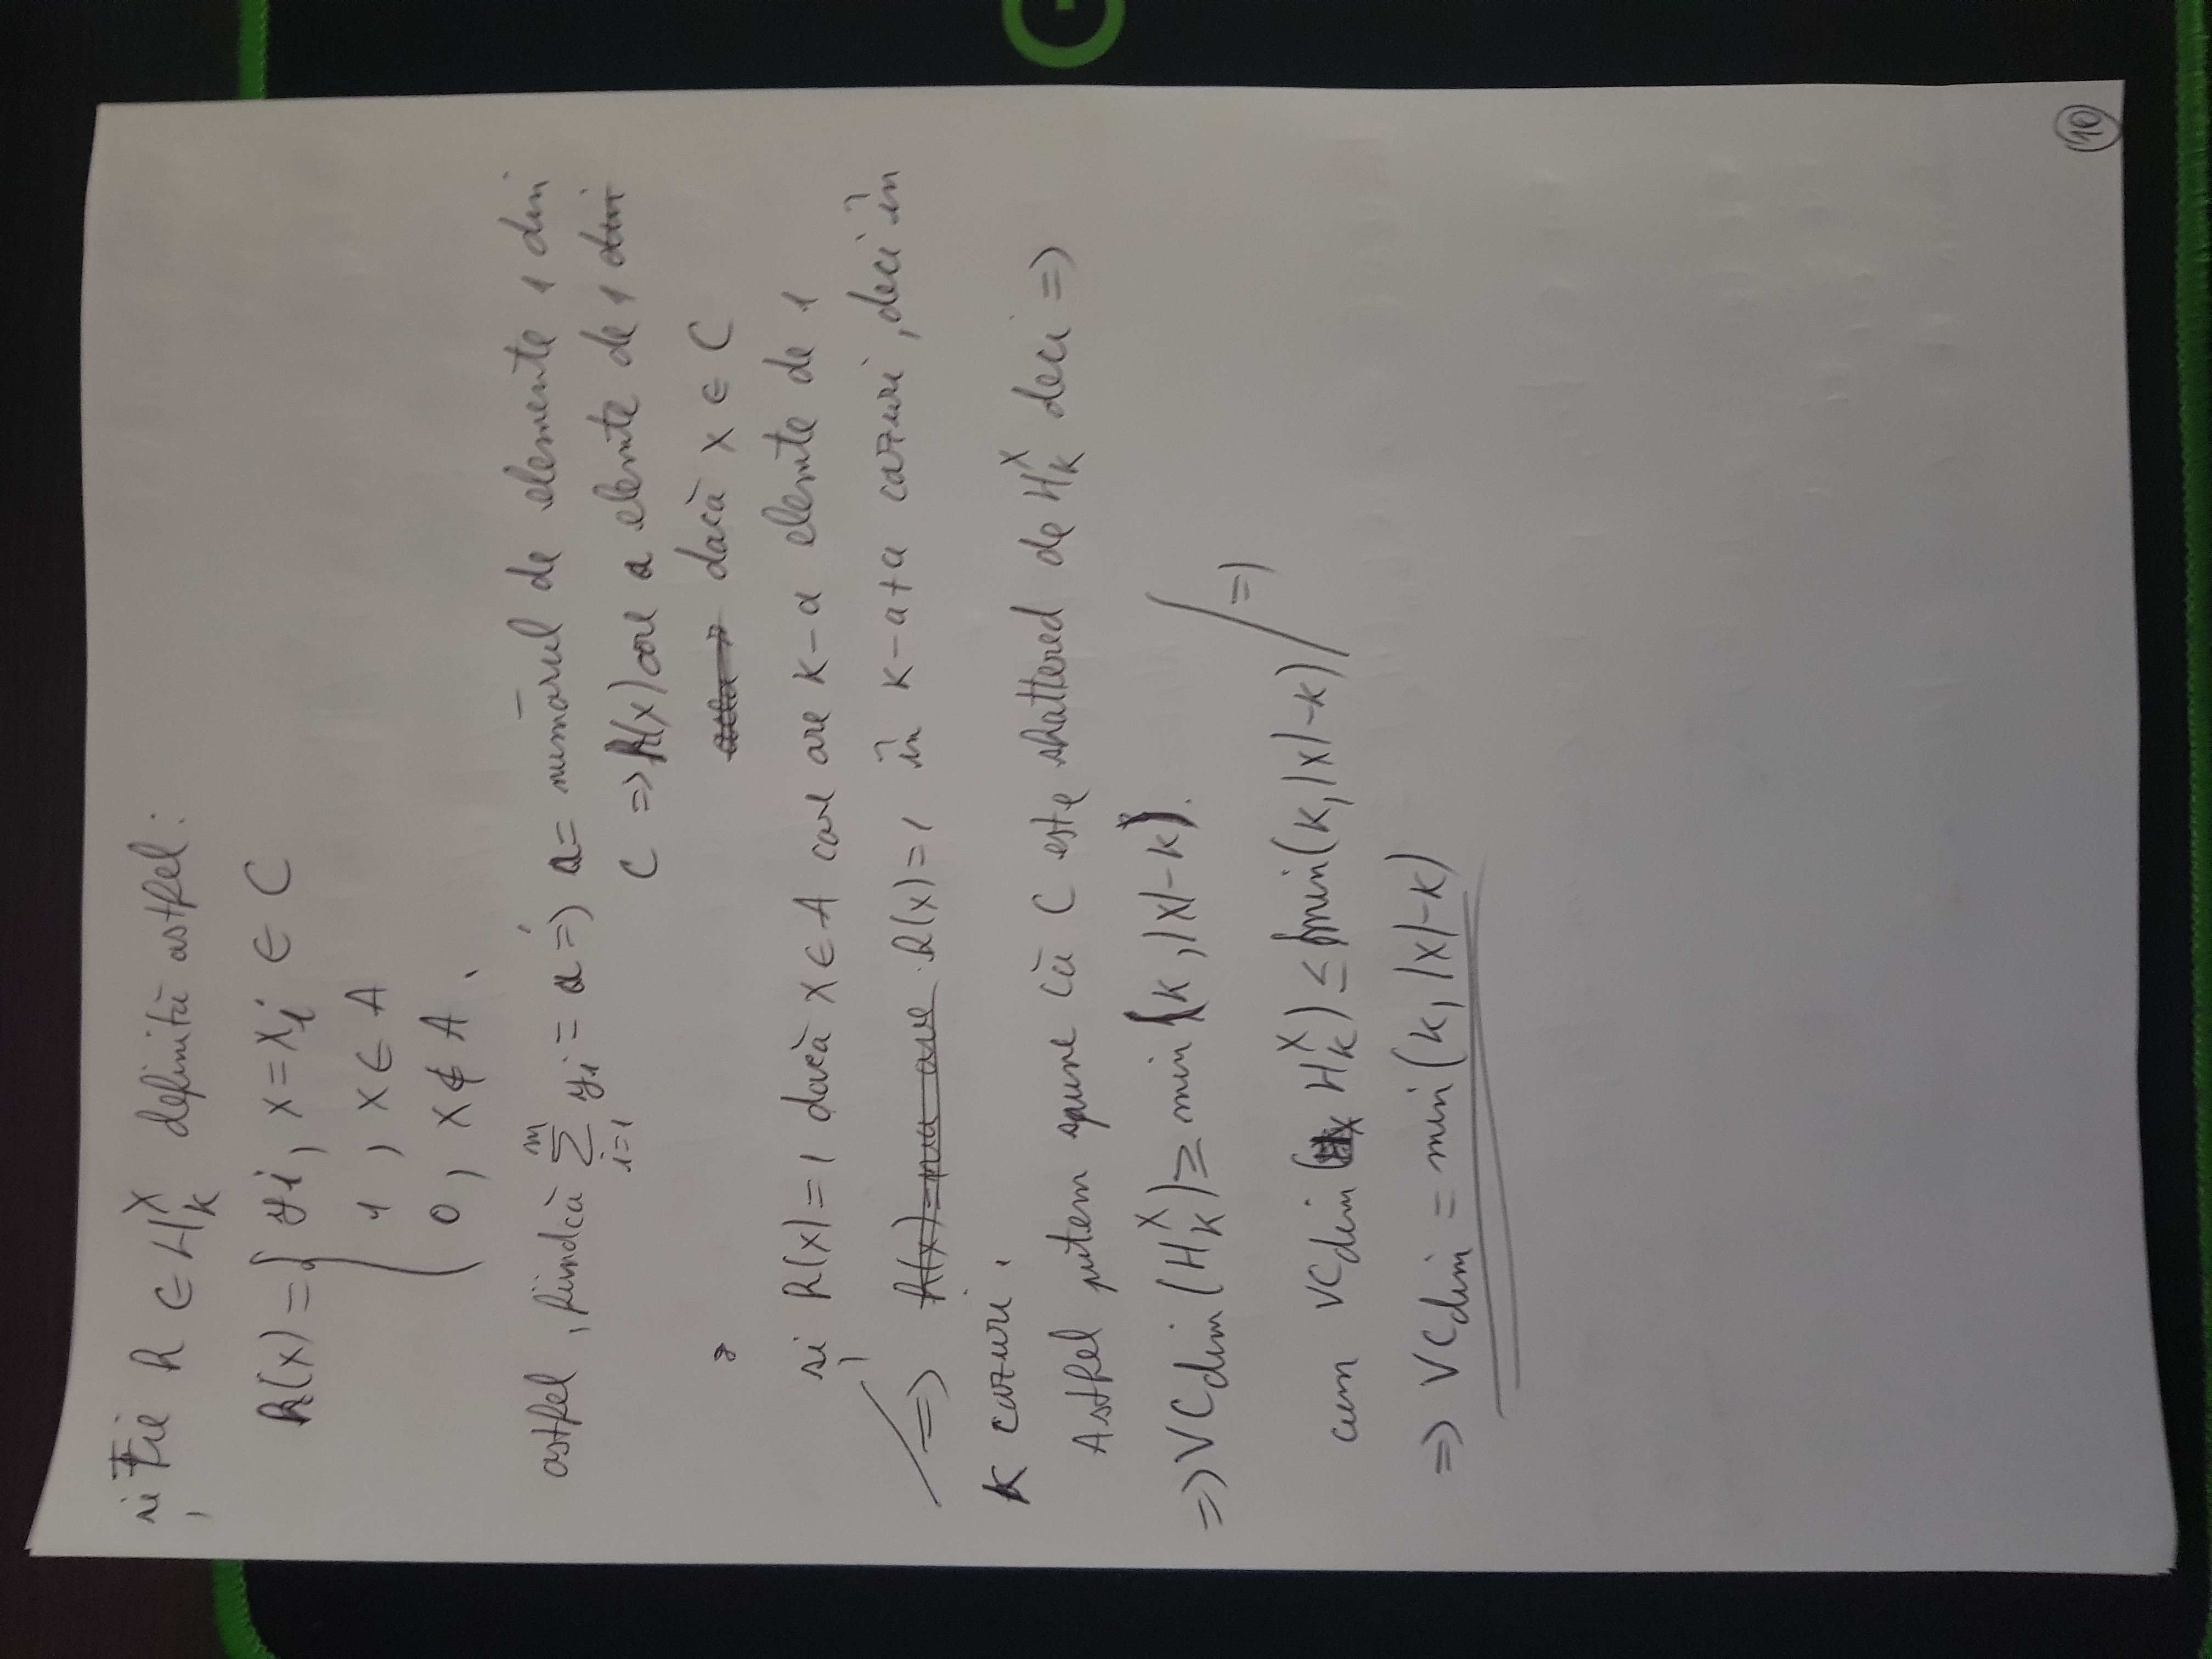 și Fie h ∈ H_k^X definită astfel:
h(x) = { yi, x = xi ∈ C
1, x ∈ A
0, x ∉ A.
astfel, fiindcă ∑_{i=1}^{m} yi = a => a = numărul de elemente 1 din
C => h(x) are a elemte de 1 din
dacă x ∈ C
și h(x) = 1 dacă x ∈ A care are k-a elemte de 1
=> h(x) = 1 în k-a+a cazuri, deci în
k cazuri.
Astfel putem spune că C este shattered de H_k^X deci =>
=> VCdim(H_k^X) ≥ min(k, |X|-k).
=>
cum VCdim(H_k^X) ≤ min(k, |X|-k)
=> VCdim = min(k, |X|-k)
10
G